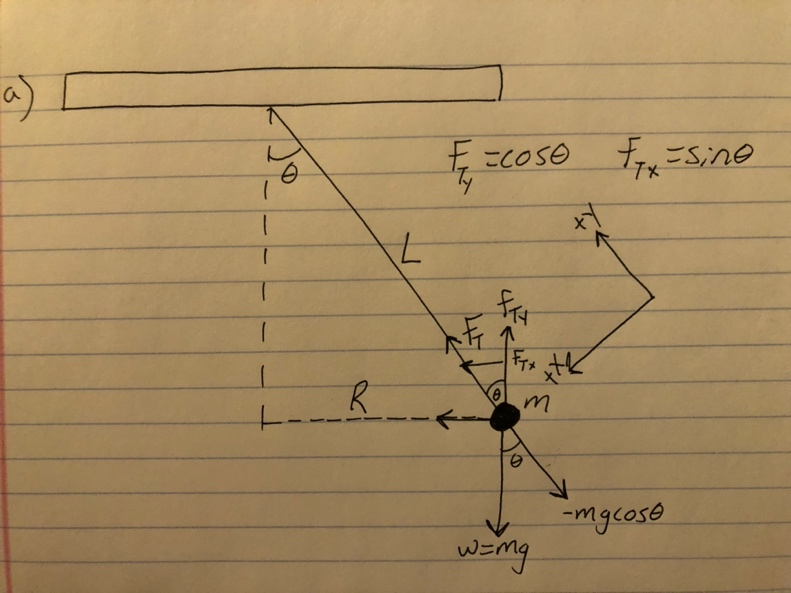 a)
θ
F_Ty = cosθ F_Tx = sinθ
L
F_Ty
F_T
F_Tx
θ
m
R
θ
-mgcosθ
w=mg